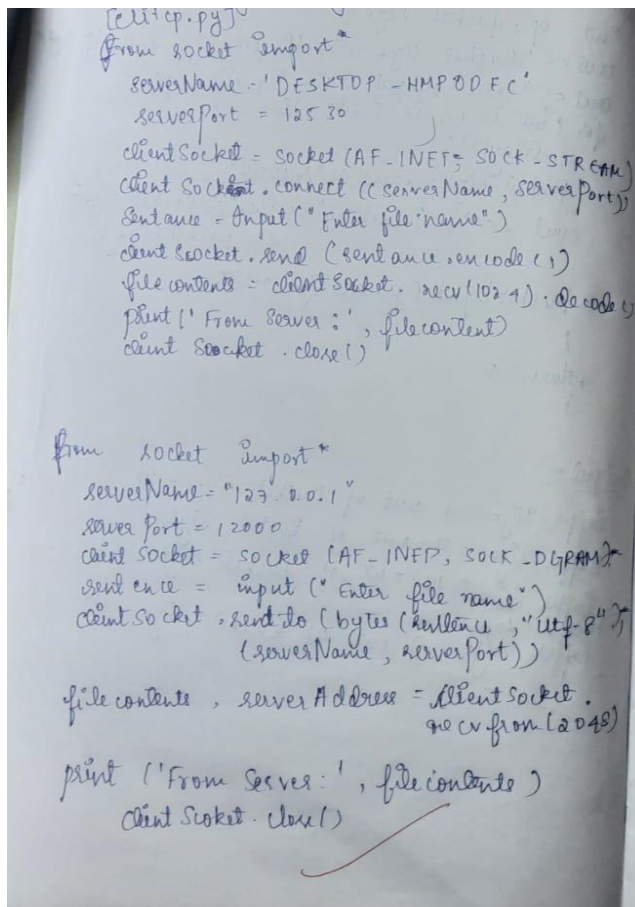 [clitcp.py]
from socket import*
serverName = 'DESKTOP - HMP0DFC'
serverPort = 12530
clientSocket = socket (AF-INET, SOCK-STREAM)
client Socket.connect ((serverName, serverPort))
Sentance = Input ("Enter file name")
client Scocket.send (sentance.encode())
file contents = client Socket. recv(1024).decode()
print (' From Server :', filecontent)
client Soocket .close()
from socket import*
serverName = "127.0.0.1"
server Port = 12000
client Socket = socket (AF-INEP, SOCK-DGRAM)
sentence = input (" Enter file name")
client So cket .sendto (bytes (sentence ,"utf-8"),
(serverName, serverPort))
file contents , serverAddress = clientSocket.
recvfrom(2048)
print ('From Server:', filecontents)
client Scoket. close()